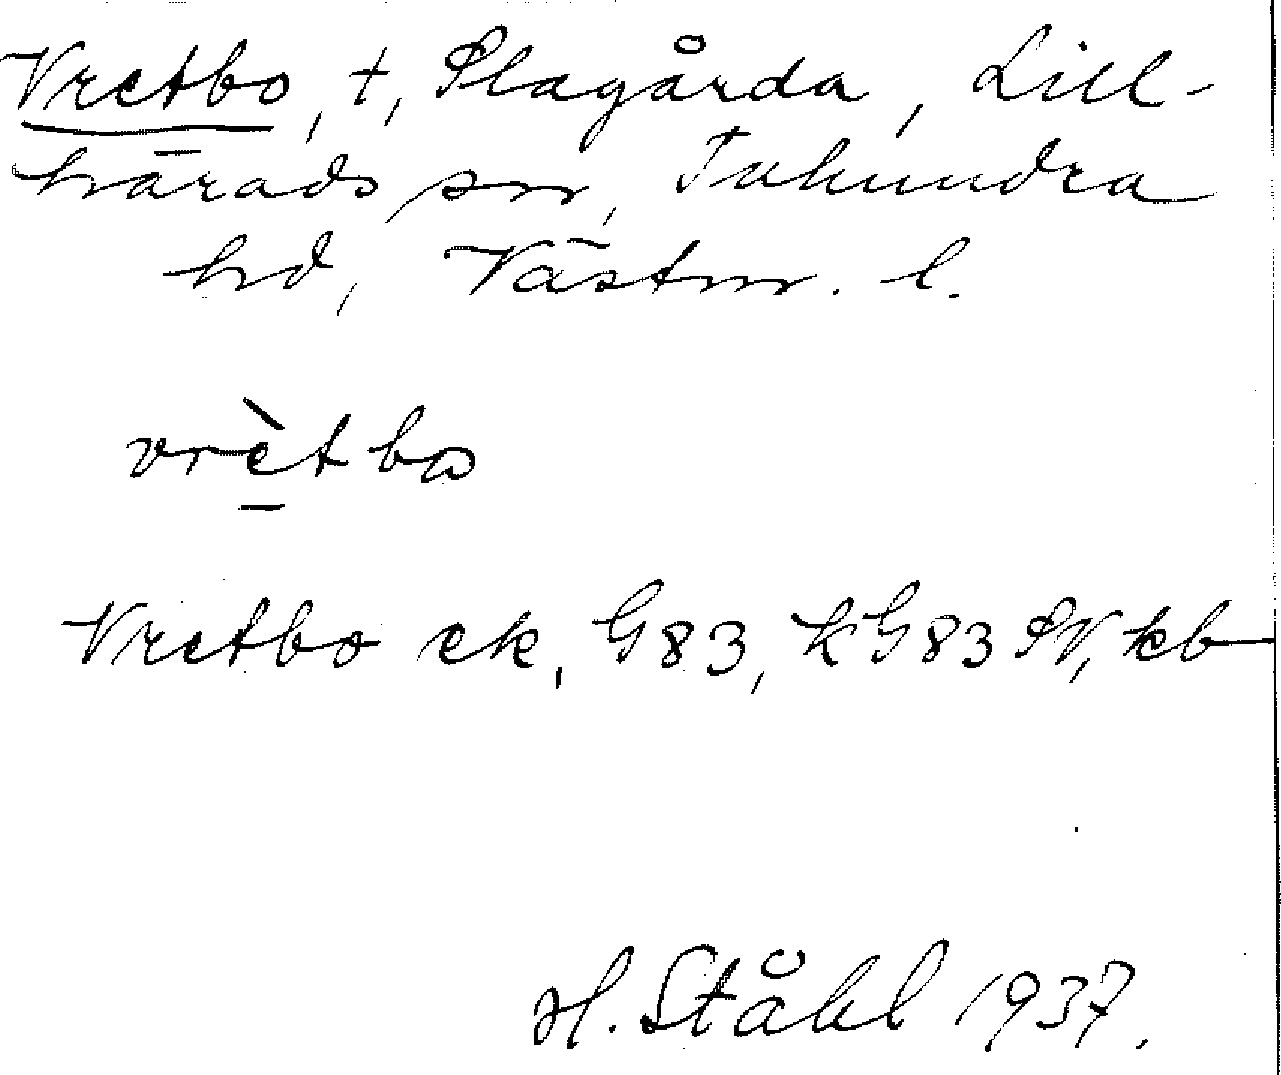 Vretbo, t, Plagårda, Lill-
härads sn, Tuhundra
hd, Västm. l.
vrètbω
Vretbo ek, G83, KG83 PV, kb
H. Ståhl 1937.